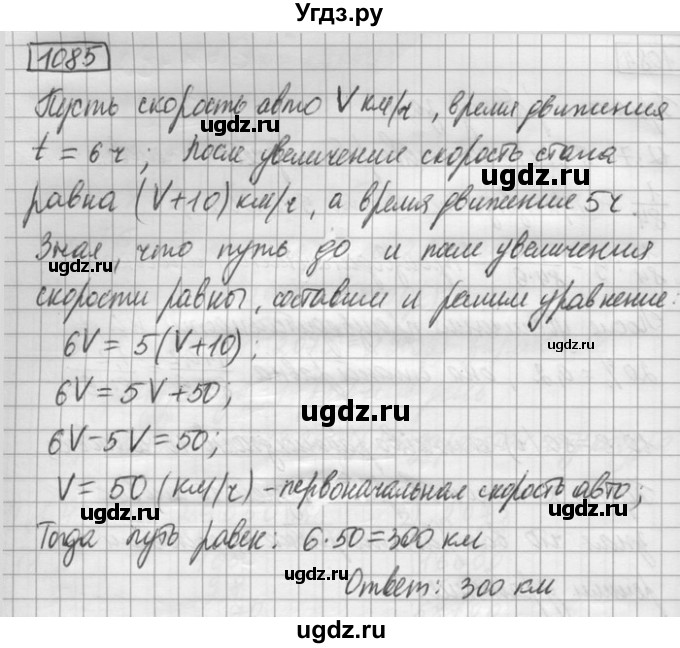 Угдз.ру
1085
Пусть скорость авто V км/ч, время движения
t = 6 ч; После увеличения скорость стала
равна (V+10) км/ч, а время движение 5 ч.
Зная, что путь до и после увеличения
скорости равны, составим и решим уравнение:
6V = 5(V+10);
6V = 5V+50;
6V-5V=50;
V = 50 (км/ч) - первоначальная скорость авто;
Тогда путь равен: 6·50=300 км
Ответ: 300 км
ugdz.ru
ugdz.ru
ugdz.ru
ugdz.ru
ugdz.ru
ugdz.ru
ugdz.ru
ugdz.ru
ugdz.ru
ugdz.ru